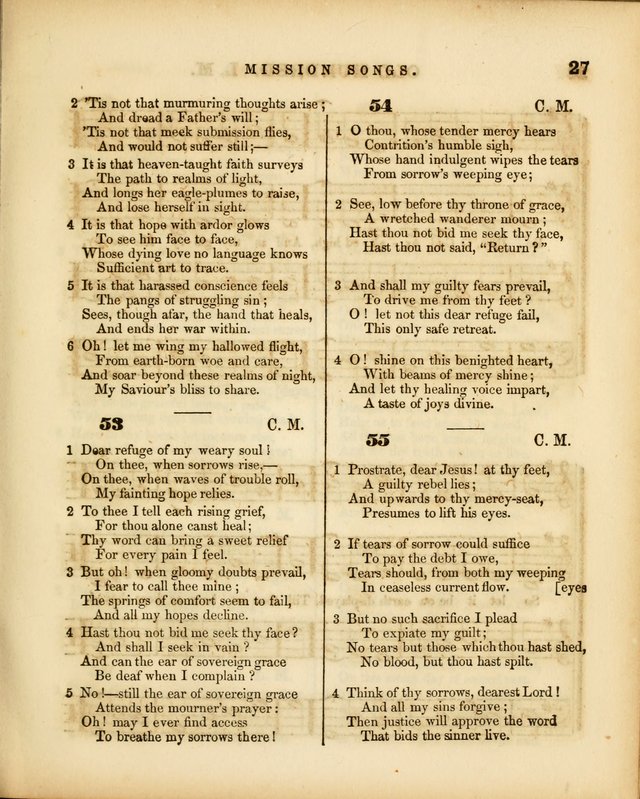 MISSION SONGS.
27
2 'Tis not that murmuring thoughts arise;
And dread a Father's will;
'Tis not that meek submission flies,
And would not suffer still;—
3 It is that heaven-taught faith surveys
The path to realms of light,
And longs her eagle-plumes to raise,
And lose herself in sight.
4 It is that hope with ardor glows
To see him face to face,
Whose dying love no language knows
Sufficient art to trace.
5 It is that harassed conscience feels
The pangs of struggling sin;
Sees, though afar, the hand that heals,
And ends her war within.
6 Oh! let me wing my hallowed flight,
From earth-born woe and care,
And soar beyond these realms of night,
My Saviour's bliss to share.
53 C. M.
1 Dear refuge of my weary soul!
On thee, when sorrows rise,—
On thee, when waves of trouble roll,
My fainting hope relies.
2 To thee I tell each rising grief,
For thou alone canst heal;
Thy word can bring a sweet relief
For every pain I feel.
3 But oh! when gloomy doubts prevail,
I fear to call thee mine;
The springs of comfort seem to fail,
And all my hopes decline.
4 Hast thou not bid me seek thy face?
And shall I seek in vain?
And can the ear of sovereign grace
Be deaf when I complain?
5 No!—still the ear of sovereign grace
Attends the mourner's prayer:
Oh! may I ever find access
To breathe my sorrows there!
54 C. M.
1 O thou, whose tender mercy hears
Contrition's humble sigh,
Whose hand indulgent wipes the tears
From sorrow's weeping eye;
2 See, low before thy throne of grace,
A wretched wanderer mourn;
Hast thou not bid me seek thy face,
Hast thou not said, "Return?"
3 And shall my guilty fears prevail,
To drive me from thy feet?
O! let not this dear refuge fail,
This only safe retreat.
4 O! shine on this benighted heart,
With beams of mercy shine;
And let thy healing voice impart,
A taste of joys divine.
55 C. M.
1 Prostrate, dear Jesus! at thy feet,
A guilty rebel lies;
And upwards to thy mercy-seat,
Presumes to lift his eyes.
2 If tears of sorrow could suffice
To pay the debt I owe,
Tears should, from both my weeping
In ceaseless current flow. [eyes
3 But no such sacrifice I plead
To expiate my guilt;
No tears but those which thou hast shed,
No blood, but thou hast spilt.
4 Think of thy sorrows, dearest Lord!
And all my sins forgive;
Then justice will approve the word
That bids the sinner live.